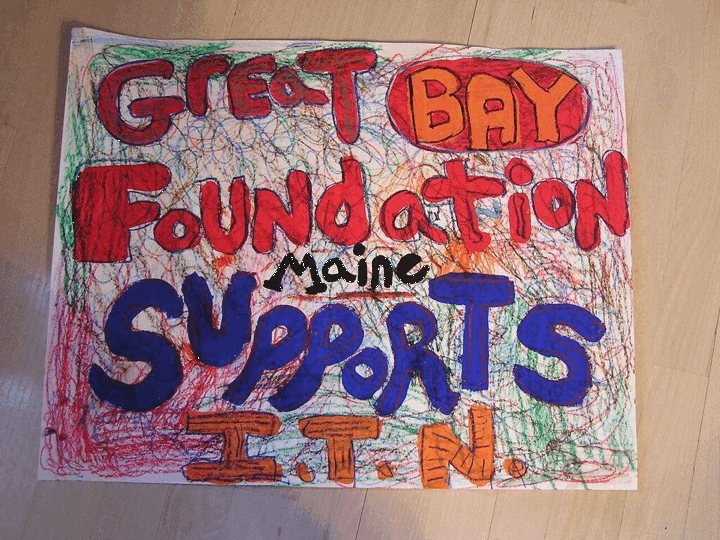 Great BAY
Foundation
Maine
SUPPORTS
I.T.N.